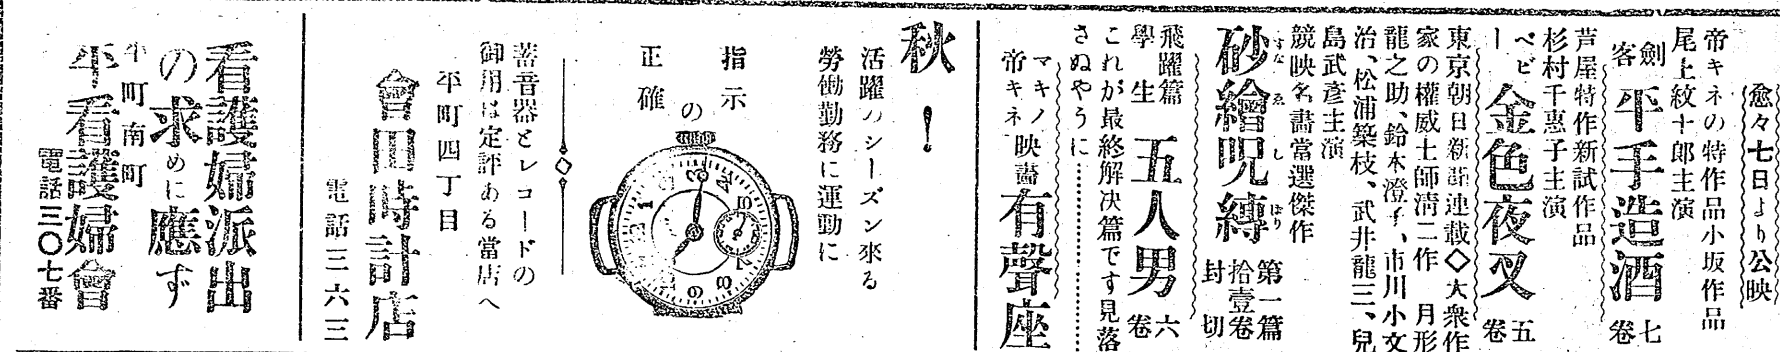 愈々七日より公映
帝キネの特作品小坂作品
尾上紋十郎主演
劍客 平手造酒 七卷
芦屋特作新試作品
杉村千惠子主演
ベビー 金色夜叉 五卷
東京朝日新聞連載◇大衆作
家の權威土師淸二作 月形
龍之助、鈴木澄子、市川小文
治、松浦築枝、武井龍三、兒
島武彥主演
競映名畵當選傑作
砂繪呪縛 第一篇 拾壹卷 封切
すなゑしばり
飛躍篇
學生 五人男 六卷
これが最終解決篇です見落
さぬやうに…………
マキノ
帝キネ 映畵 有聲座
秋!
活躍のシーズン來る
勞働勤務に運動に
指示
の
正確
蓄音器とレコードの
御用は定評ある當店へ
平町四丁目
會田時計店
電話三六三
看護婦派出
の求めに應ず
平町南町
平看護婦會
電話三〇七番